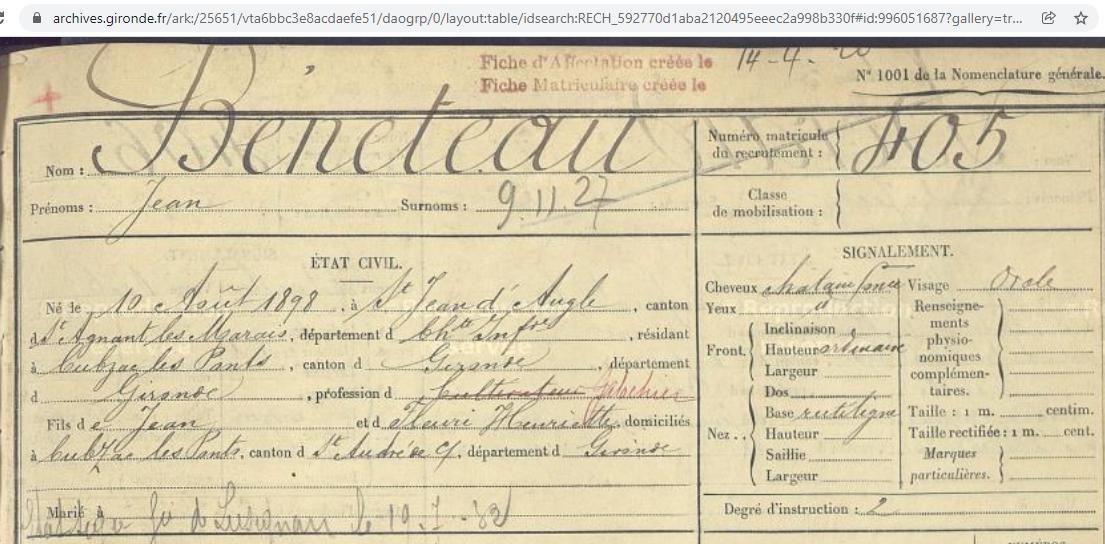 archives.gironde.fr/ark:/25651/vta6bbc3e8acdaefe51/daogrp/0/layout:table/idsearch:RECH_592770d1aba2120495eeec2a998b330f#id:996051687?gallery=tr...
Fiche d'Affectation créée le 14-4-20
Fiche Matriculaire créée le
N° 1001 de la Nomenclature générale.
Nom : Béneteau
Numéro matricule du recrutement : 405
Prénoms : Jean Surnoms : 9.11.27
Classe de mobilisation :
ÉTAT CIVIL.
Né le 10 Août 1898, à St Jean d'Angle, canton
d St Agnant les Marais, département d Chte Infre, résidant
à Cubzac les Ponts, canton d Gironde, département
d Gironde, profession d Cultivateur
Fils de Jean et d Fleuri Henriette, domiciliés
à Cubzac les Ponts, canton d St André de C, département d Gironde
Marié à
le 19-7-32
SIGNALEMENT.
Cheveux châtain foncé Visage Ovale
Yeux id
Front. Inclinaison
Hauteur ordinaire
Largeur
Nez.. Dos
Base rectiligne
Hauteur
Saillie
Largeur
Renseignements physionomiques complémentaires.
Taille : 1 m. centim.
Taille rectifiée : 1 m. cent.
Marques particulières.
Degré d'instruction : 2